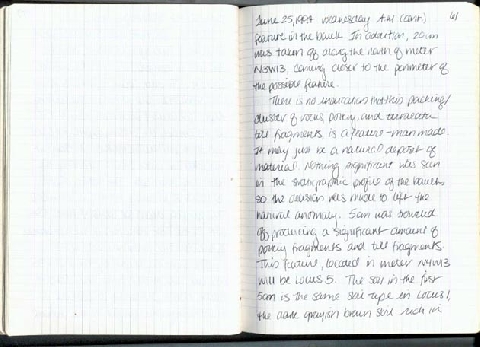 June 25, 1994 Wednesday A.M. (cont) 61
feature in the baulk. In addition, 20cm
was taken off along the north of meter
N3W13, coming closer to the perimeter of
the possible feature.
There is no indication that this packing/
cluster of rocks, pottery, and terracotta
tile fragments is a feature - man made.
It may just be a natural deposit of
material. Nothing significant was seen
in the stratigraphic profile of the baulks
so the decision was made to lift the
natural anomaly. 5cm was
off procuring a significant amount of
pottery fragments and tile fragments.
This feature, located in meter
will be Locus 5. The soil in the first
5cm is the same soil type in Locus 1,
the dark greyish brown soil rich in